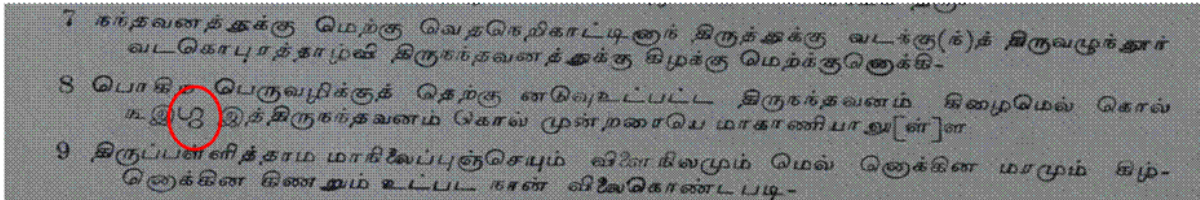 7 நந்தவனத்துக்கு மெற்கு வெதநெறிகாட்டினான் திருத்துக்கு வடங்கு(ந்)த் திருவழுந்தூர்
வடகொபுரத்தாழ்வி திருநந்தவனத்துக்கு கிழக்கு மெற்க்குனொக்கி-
8 பொகிற பெருவழிக்குத் தெற்கு னடுவுஉட்பட்ட திருநந்தவனம் கிழைமெல் கொல்
௩இ இத்திருநந்தவனம் கொல் முன்றரையெ மாகாணியாலு[ள்]ள
9 திருப்பள்ளித்தாம மாநிலைப்புஞ்செயும் விளைநிலமும் மெல் னொக்கின மரமும் கிழ்-
னொக்கின கிணறும் உட்பட நான் விலைகொண்டபடி-